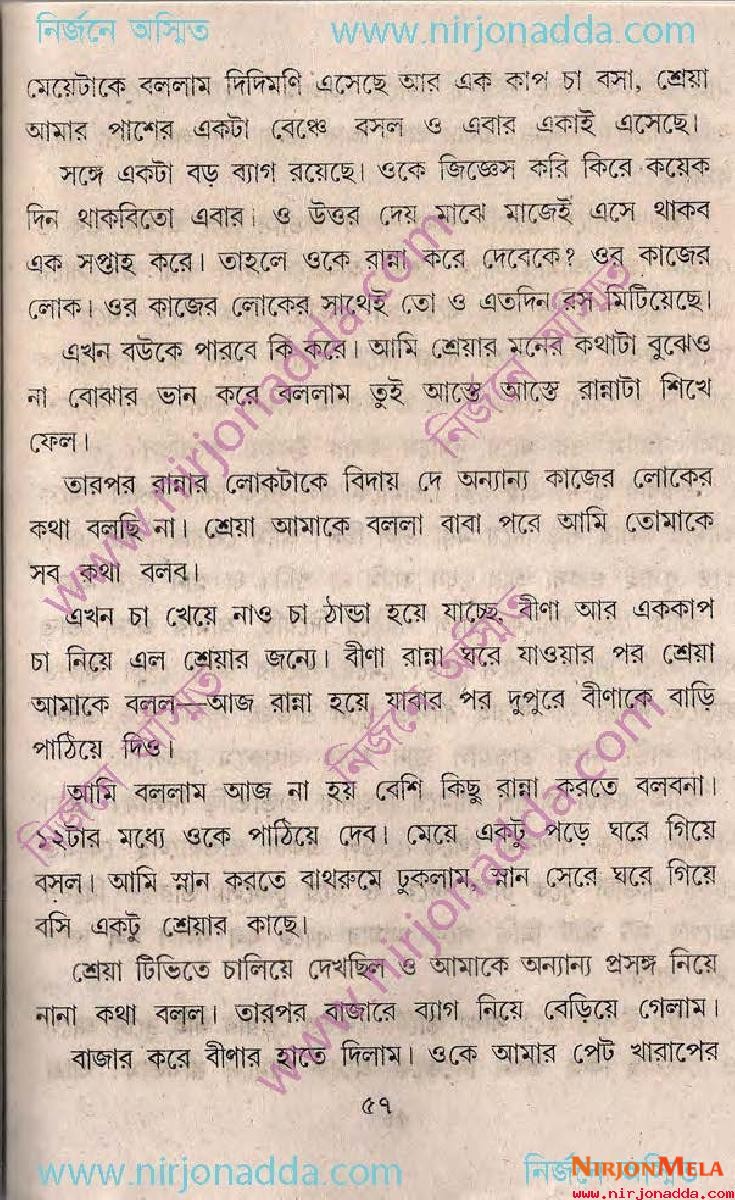 নির্জনে অস্মিত www.nirjonadda.com
মেয়েটাকে বললাম দিদিমণি এসেছে আর এক কাপ চা বসা, শ্রেয়া
আমার পাশের একটা বেঞ্চে বসল ও এবার একাই এসেছে।
সঙ্গে একটা বড় ব্যাগ রয়েছে। ওকে জিজ্ঞেস করি কিরে কয়েক
দিন থাকবিতো এবার। ও উত্তর দেয় মাঝে মাজেই এসে থাকব
এক সপ্তাহ করে। তাহলে ওকে রান্না করে দেবেকে? ওর কাজের
লোক। ওর কাজের লোকের সাথেই তো ও এতদিন রস মিটিয়েছে।
এখন বউকে পারবে কি করে। আমি শ্রেয়ার মনের কথাটা বুঝেও
না বোঝার ভান করে বললাম তুই আস্তে আস্তে রান্নাটা শিখে
ফেল।
তারপর রান্নার লোকটাকে বিদায় দে অন্যান্য কাজের লোকের
কথা বলছি না। শ্রেয়া আমাকে বললা বাবা পরে আমি তোমাকে
সব কথা বলব।
এখন চা খেয়ে নাও চা ঠান্ডা হয়ে যাচ্ছে, বীণা আর এককাপ
চা নিয়ে এল শ্রেয়ার জন্যে। বীণা রান্না ঘরে যাওয়ার পর শ্রেয়া
আমাকে বলল—আজ রান্না হয়ে যাবার পর দুপুরে বীণাকে বাড়ি
পাঠিয়ে দিও।
আমি বললাম আজ না হয় বেশি কিছু রান্না করতে বলবনা।
১২টার মধ্যে ওকে পাঠিয়ে দেব। মেয়ে একটু পড়ে ঘরে গিয়ে
বসল। আমি স্নান করতে বাথরুমে ঢুকলাম, স্নান সেরে ঘরে গিয়ে
বসি একটু শ্রেয়ার কাছে।
শ্রেয়া টিভিতে চালিয়ে দেখছিল ও আমাকে অন্যান্য প্রসঙ্গ নিয়ে
নানা কথা বলল। তারপর বাজারে ব্যাগ নিয়ে বেড়িয়ে গেলাম।
বাজার করে বীণার হাতে দিলাম। ওকে আমার পেট খারাপের
৫৭
www.nirjonadda.com নির্জনে অস্মিত
NIRJONMELA
www.nirjonadda.com
www.nirjonadda.com
নির্জনে অস্মিত
নির্জনে অস্মিত
নির্জনে অস্মিত
www.nirjonadda.com